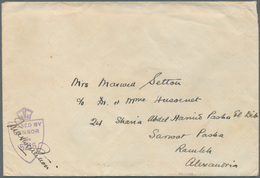 Mrs Maxwell Setton
c/o M. & Mme Hussenot
24 Sharia Abdel Hamid Pasha El Dib
Sarwat Pasha
Ramleh
Alexandria